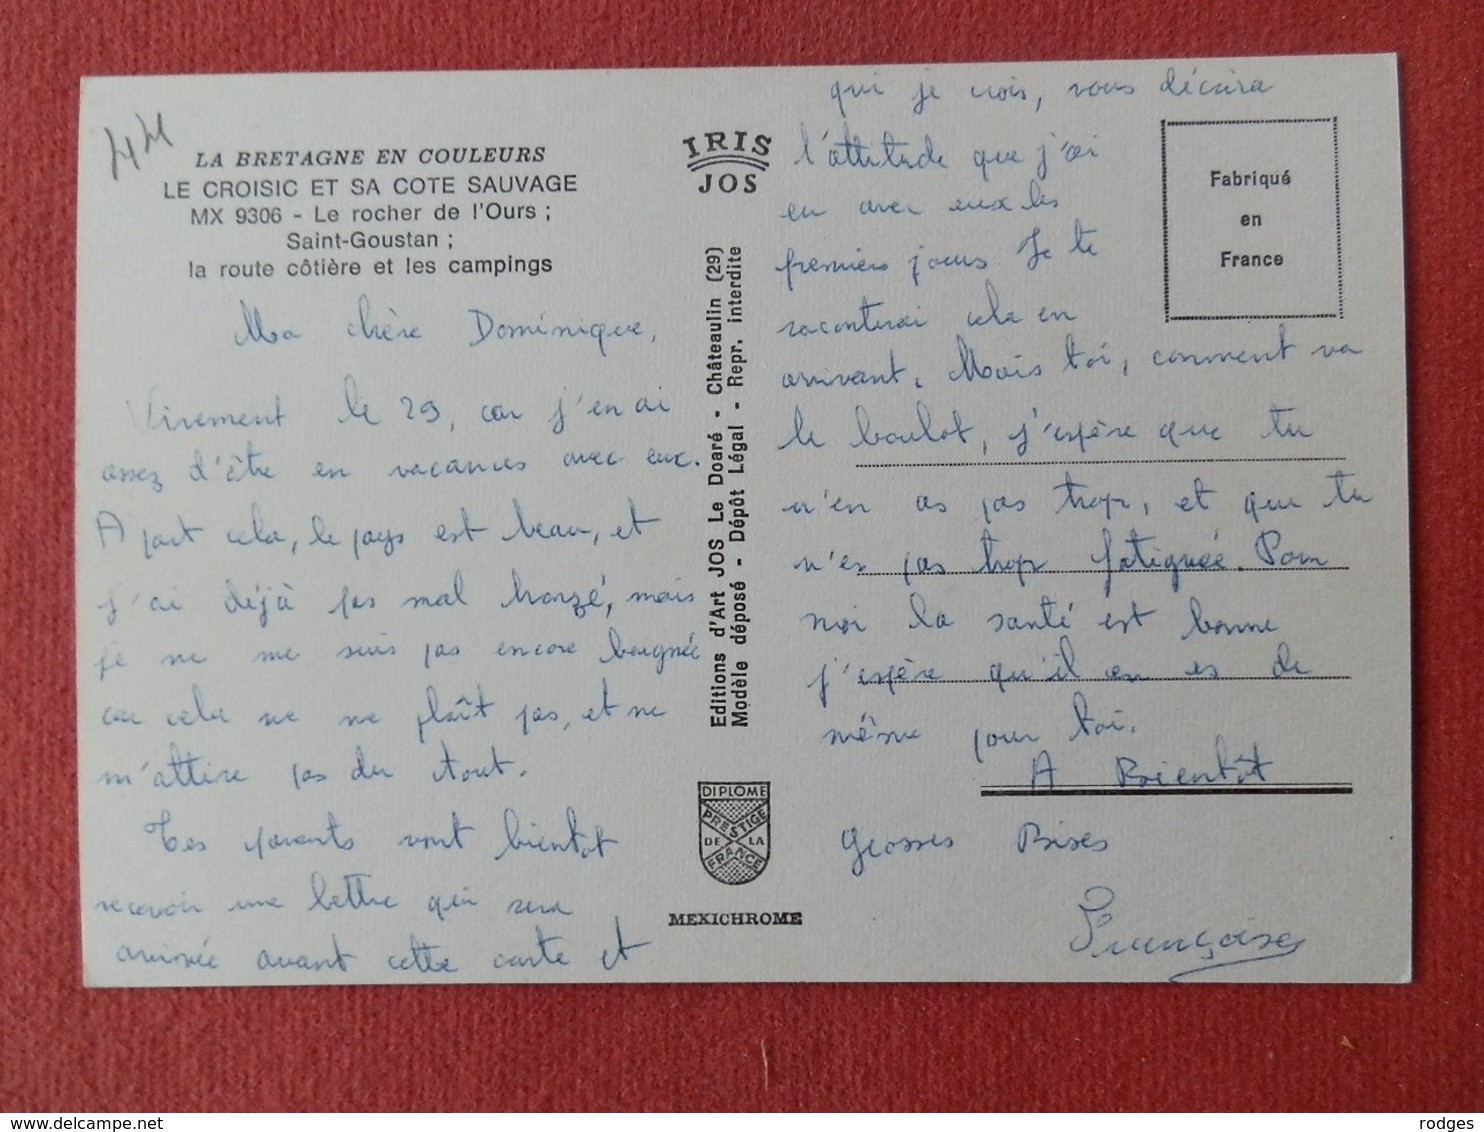 44
LA BRETAGNE EN COULEURS
LE CROISIC ET SA COTE SAUVAGE
MX 9306 - Le rocher de l'Ours ;
Saint-Goustan ;
la route côtière et les campings
Ma chère Dominique,
Virement le 29, car j'en ai
assez d'être en vacances avec eux.
A part cela, le pays est beau, et
j'ai déjà pas mal bronzé, mais
je ne me suis pas encore baignée
car cela ne me plaît pas, et ne
m'attire pas du tout.
Tes parents vont bientot
recevoir une lettre qui sera
arrivée avant cette carte et
IRIS
JOS
Editions d'Art JOS Le Doaré - Châteaulin (29)
Modèle déposé - Dépôt Légal - Repr. interdite
DIPLOME
PRESTIGE
DE LA
FRANCE
MEXICHROME
qui je crois, vous décrira
l'attitude que j'ai
eu avec eux les
premiers jours. Je te
raconterai cela en
arrivant. Mais toi, comment va
le boulot, j'espère que tu
n'en as pas trop, et que tu
n'es pas trop fatiguée. Pour
moi la santé est bonne
j'espère qu'il en es de
même pour toi.
A Bientôt
Grosses Bises
Françoise
Fabriqué
en
France
delcampe.net
rodges